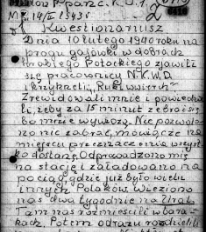 Kwestionariusz
Dnia 10 lutego 1940 roku na
progu gajówki w dobrach
hrabiego Potockiego zjawili
się pracownicy N.K.W.D
i krzyknęli,
Zrewidowali mnie i powiedzie-
li, żeby za 15 minut zebrał się
bo mnie wywiozą. Nie pozwolo-
no nic zabrać, mówiąc że na
miejscu przeznaczenia wszyst-
ko dostanę. Odprowadzono mię
na stację i załadowano na
pociąg, gdzie już było wielu
innych Polaków. Wieziono
nas dwa tygodnie na Ural.
Tam nas rozmieścili w bara-
kach. Potem od razu